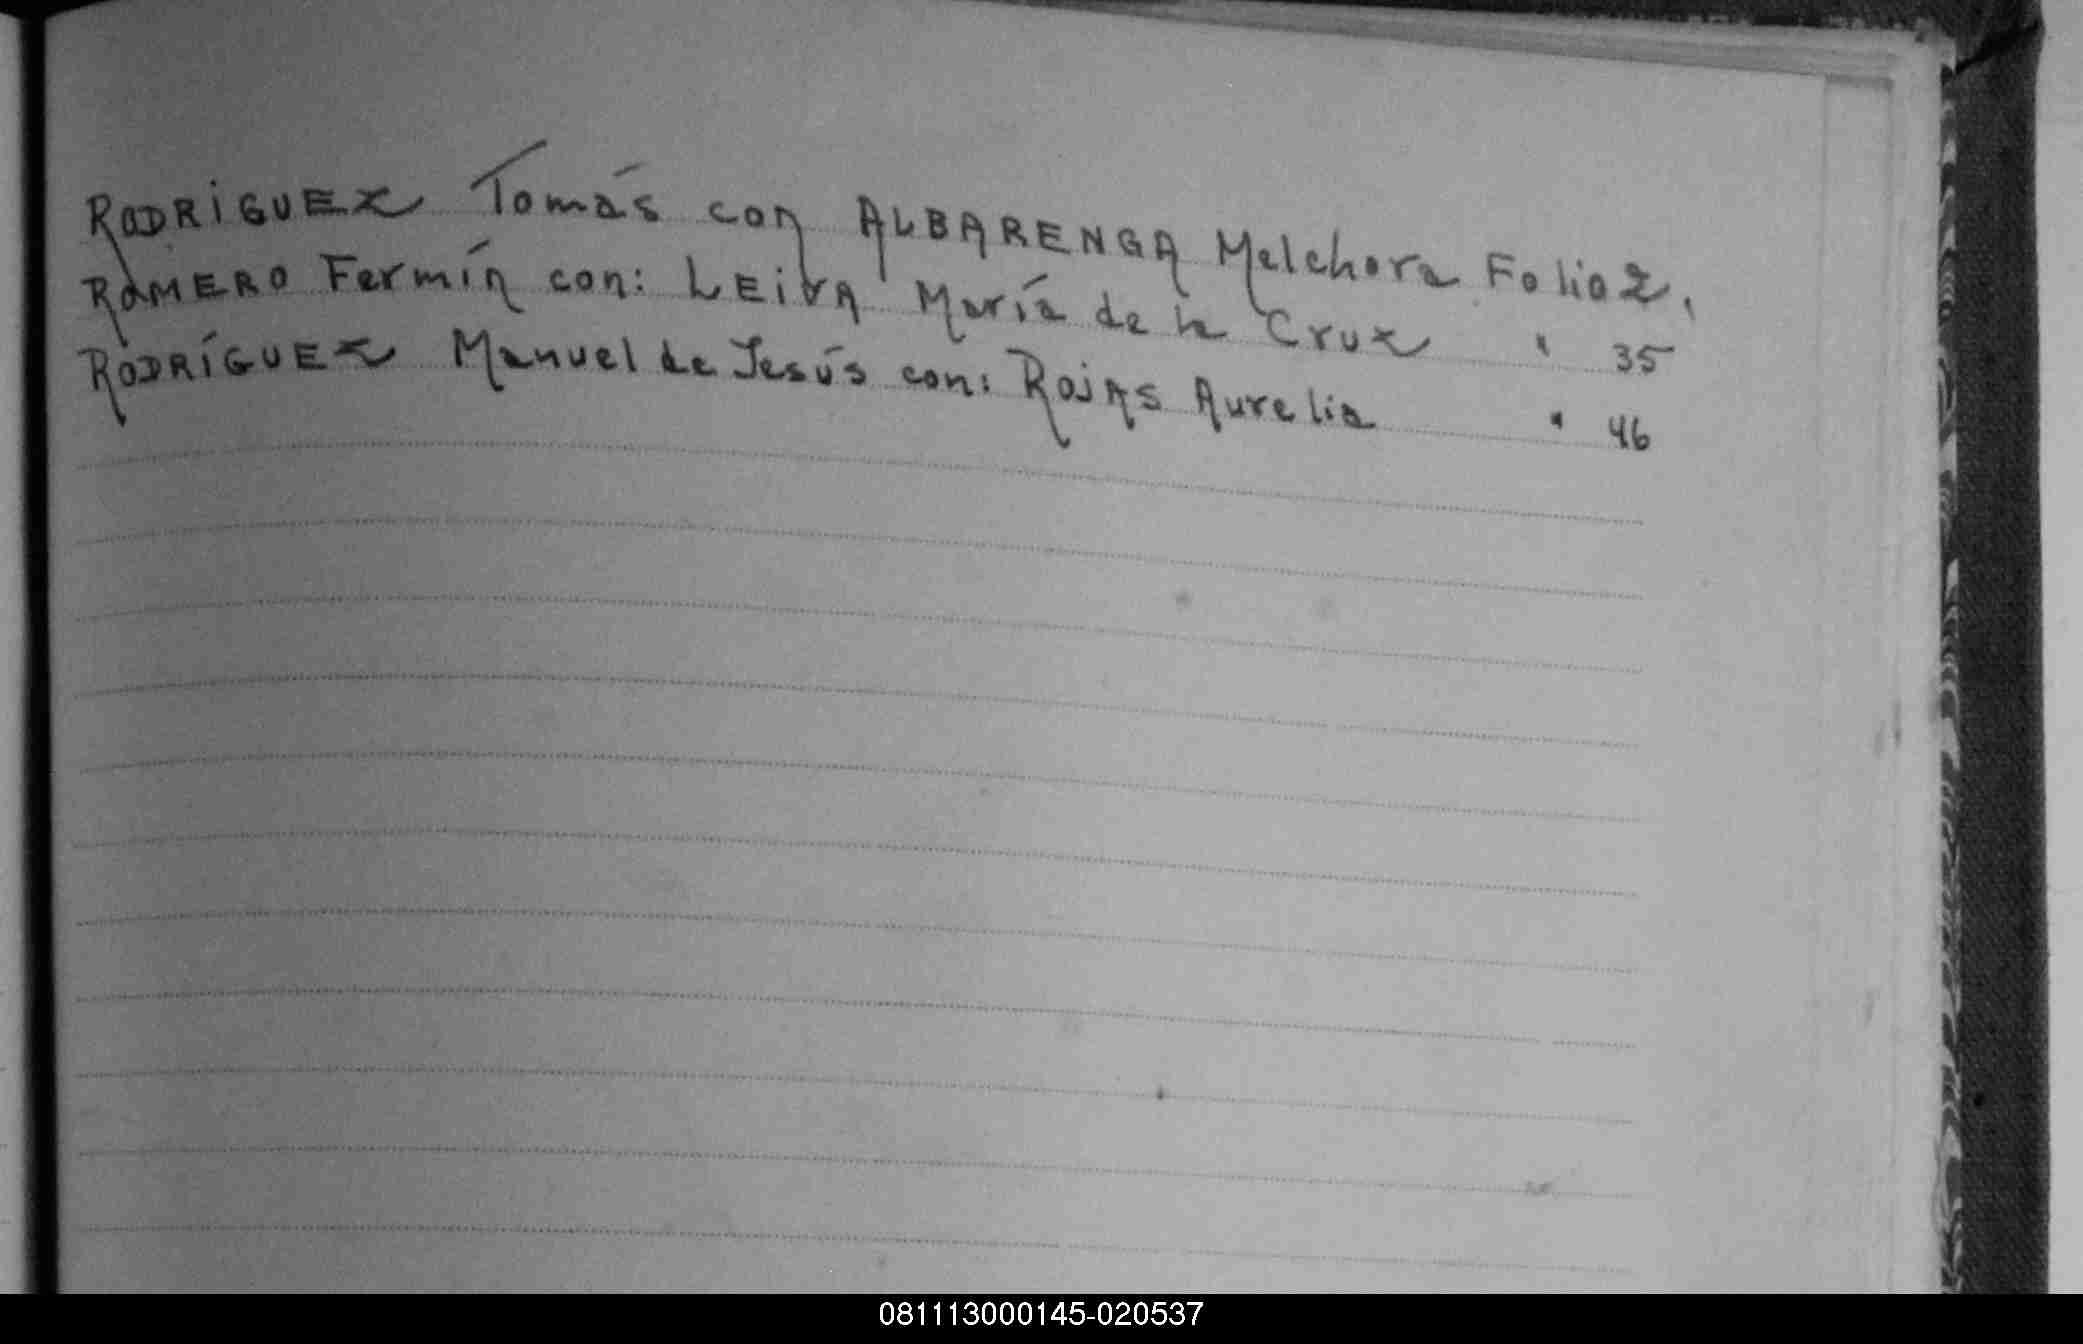 RODRIGUEZ Tomás con ALBARENGA Melchora Folio 2.
ROMERO Fermín con: LEIVA María de la Cruz " 35
RODRÍGUEZ Manuel de Jesús con: ROJAS Aurelia " 46
081113000145-020537